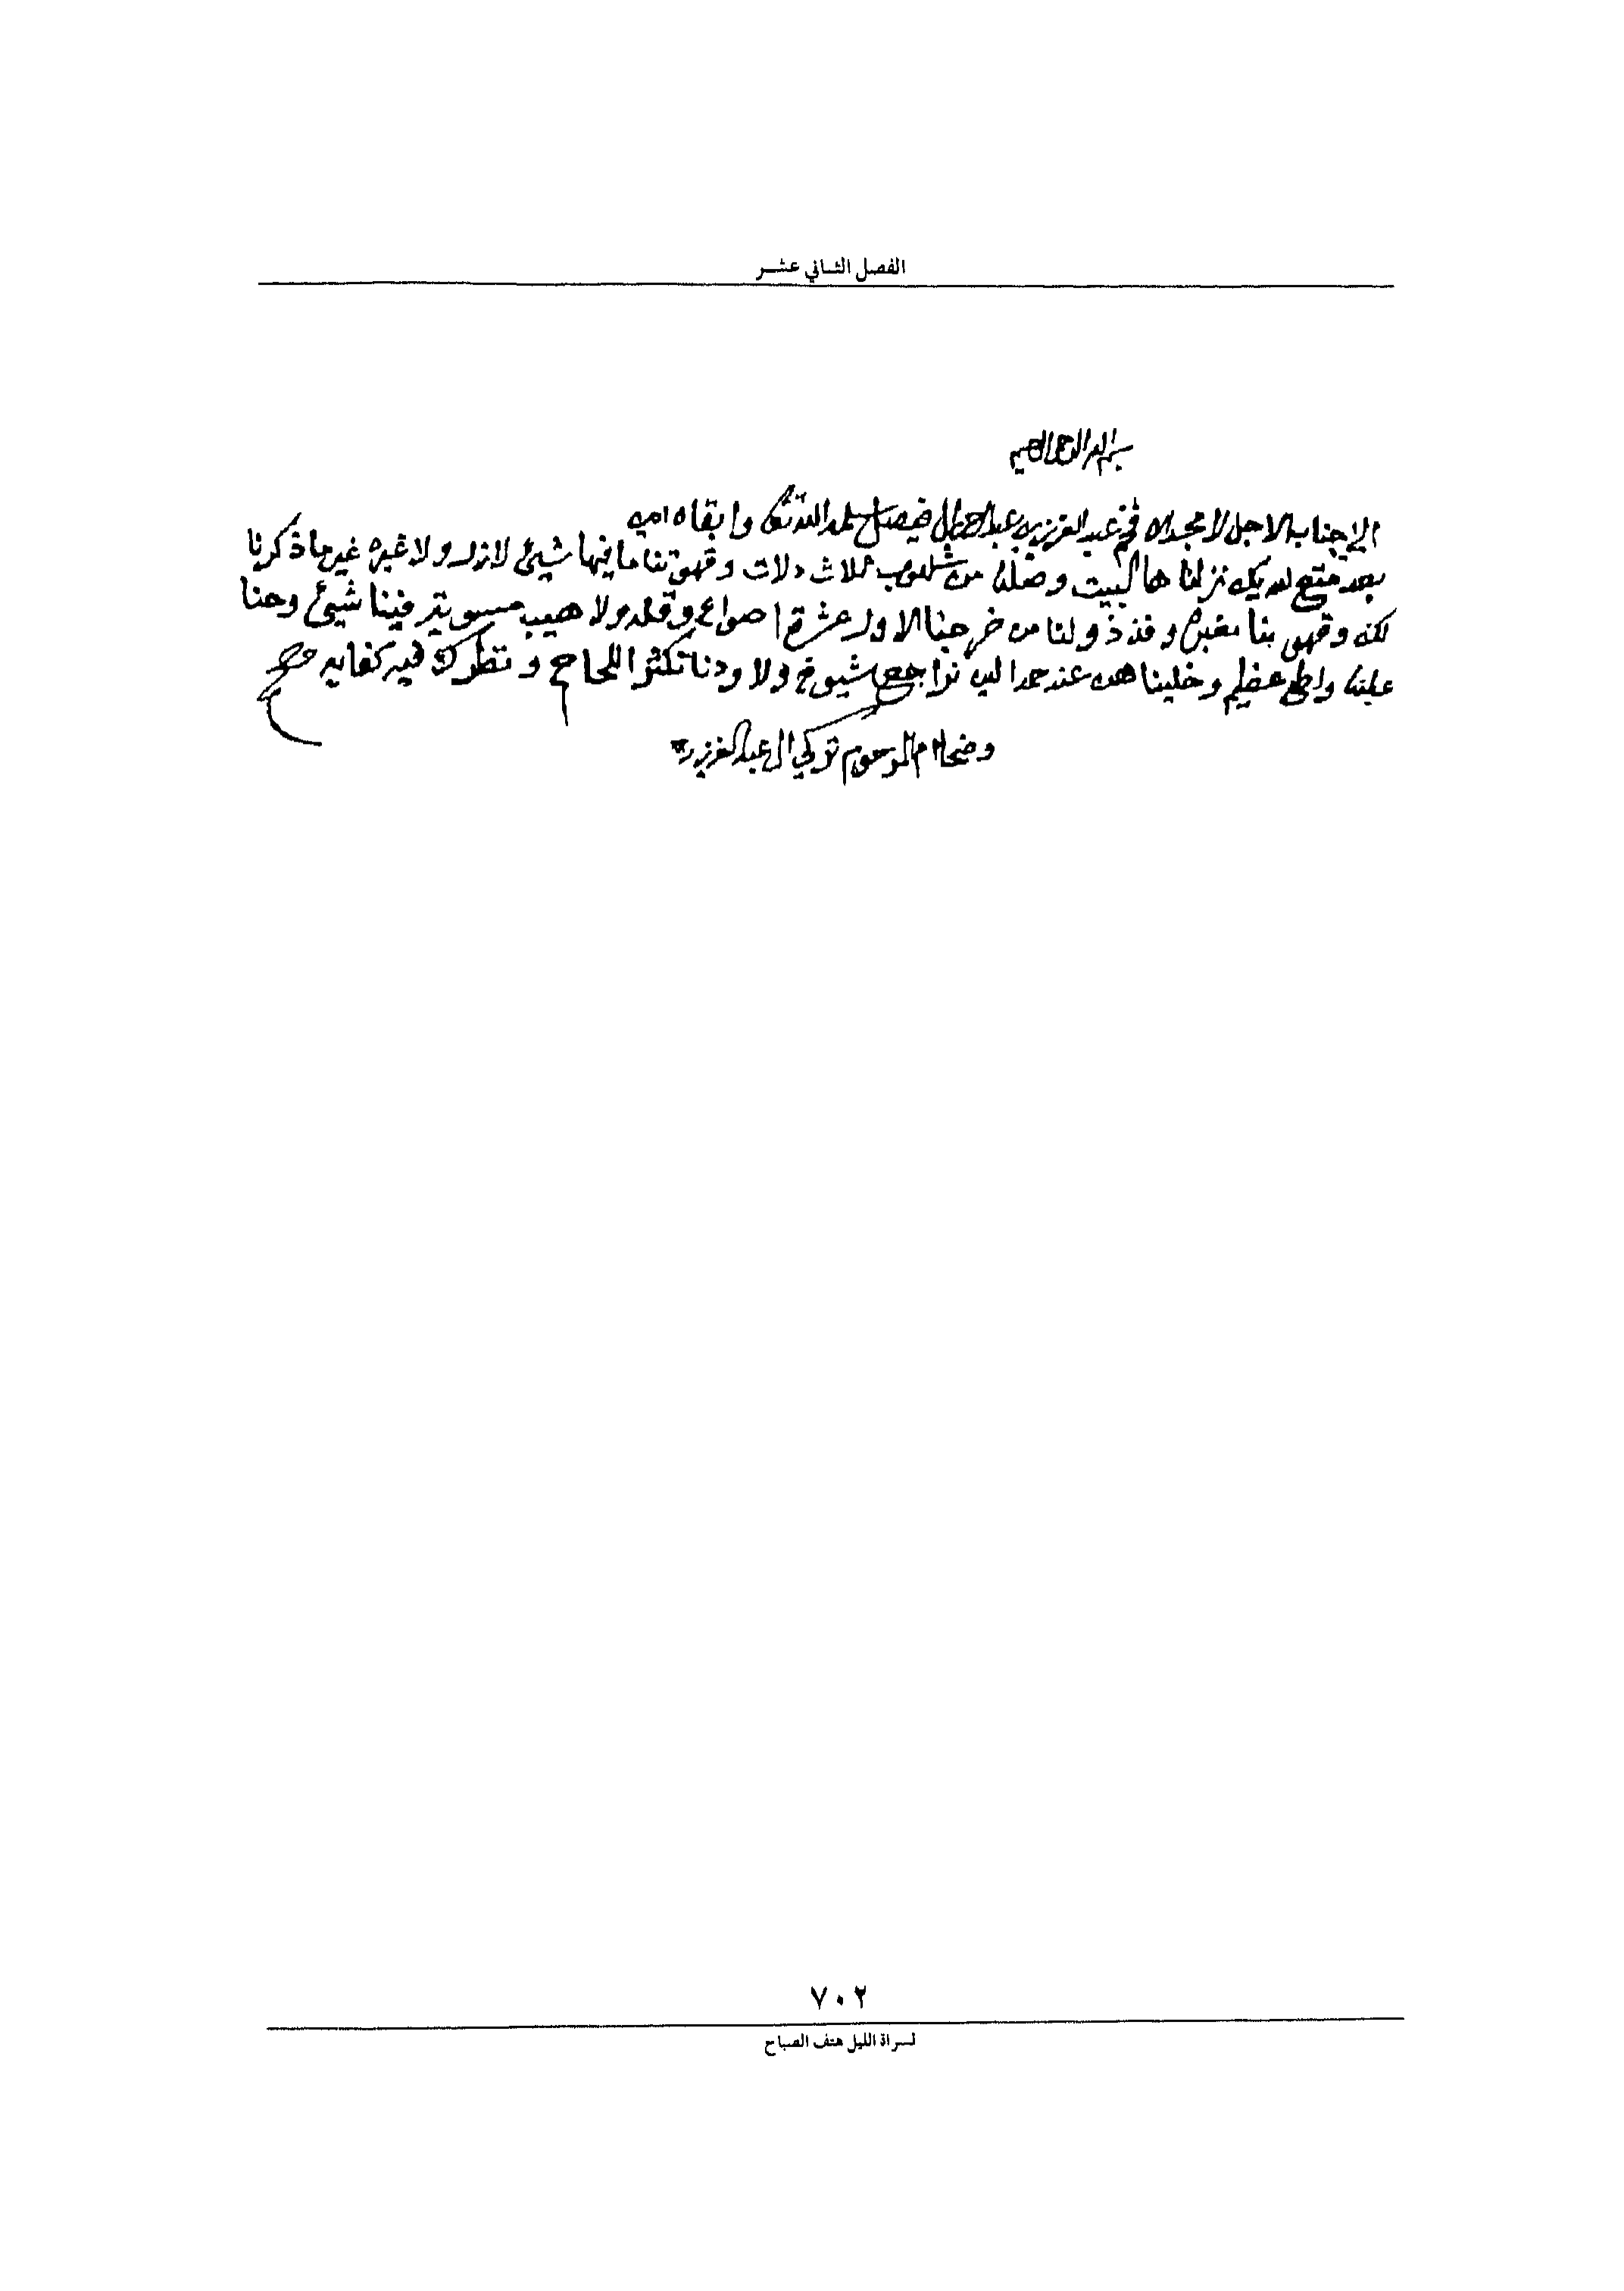 الفصل الثاني عشر
بسم الله الرحمن الرحيم
الى جناب الاجل الامجد الافخم عبد العزيز بن عبد الرحمن ال فيصل سلمه الله تعالى وابقاه امين
بعد متع الله بك نزلنا هالبيت وصلنا من شلهوب ثلاث دلات وقهوتنا ما فيها شيئ لا زل ولا غيره غير ما ذكرنا
لك وقهو بنا مغبره وقد ذولنا من خرجنا الاول عشرة اصواع وقله ولا هيب مسويتٍ فينا شيئ وحنا
علينا واطي عظيم وخلينا عند حمد الين نراجع شيوخ ولا ودنا نكثر اللحاح ونظرك فيه كفايه
وضحا ام المرحوم تركي ال عبد العزيز
٧٠٢
لسراة الليل هتف الصباح